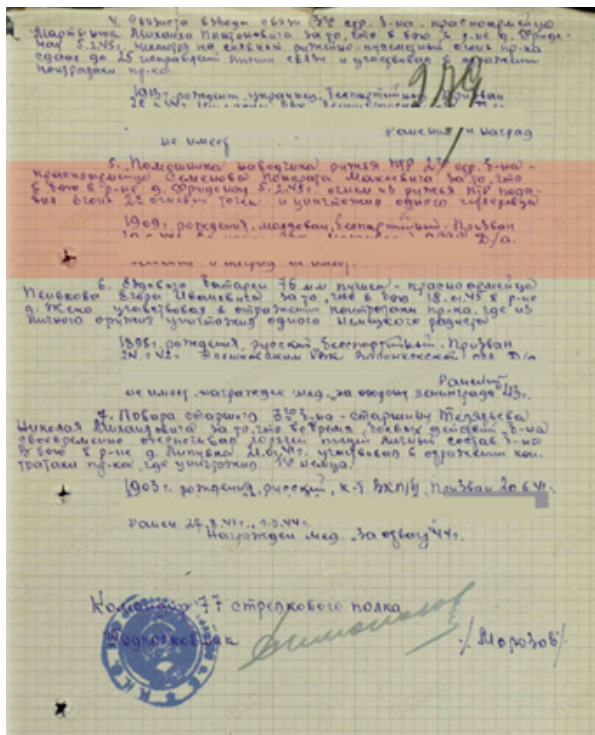 4. Связиста взвода связи 3го стр. б-на - красноармейца
Мартынюк Михаила за то, что в бою в р-не д. Фриде-
нау 5.2.45г. несмотря на сильный ружейно-пулеметный огонь пр-ка
сделал до 25 исправлений линии связи и участвовал в отражении
контратаки пр-ка.
979
1913г. рождения, украинец, беспартийный. Призван
Ранений и наград
не имеет
5. Помощника наводчика ружья ПТР 2го стр. б-на -
красноармейца Семенова за то, что
в бою в р-не д. Фриденау 5.2.45г. огнем из ружья ПТР пода-
вил огонь 2х огневых точек и уничтожил одного гитлеровца
1909г. рождения, молдован, беспартийный. Призван
Д/а.
и наград не имеет.
6. Ездового батареи 76 мм пушек - красноармейца
Пенькова Егора Ивановича за то, что в бою 18.01.45 в р-не
д. участвовал в отражении контратаки пр-ка, где из
личного оружия уничтожил одного немецкого радиста
1898г. рождения, русский, беспартийный. Призван
РВК Воронежской обл Д/а
Ранений
не имеет, награжден мед. "за оборону Ленинграда" 43г.
7. Повара старшего 3го б-на - старшину
Николая Михайловича за то, что во время боевых действий б-на
своевременно обеспечивал горячей пищей личный состав б-на
В бою в р-не д. Липувка 21.01.45г. участвовал в отражении кон-
тратаки пр-ка, где уничтожил 1го немца.
1903г. рождения, русский, к-т ВКП/б/, Призван 20.6.41г.
Ранен 27.8.41г., 1.9.44г.
Награжден мед. "За отвагу" 44г.
Командир 77 стрелкового полка
Подполковник
/Морозов/